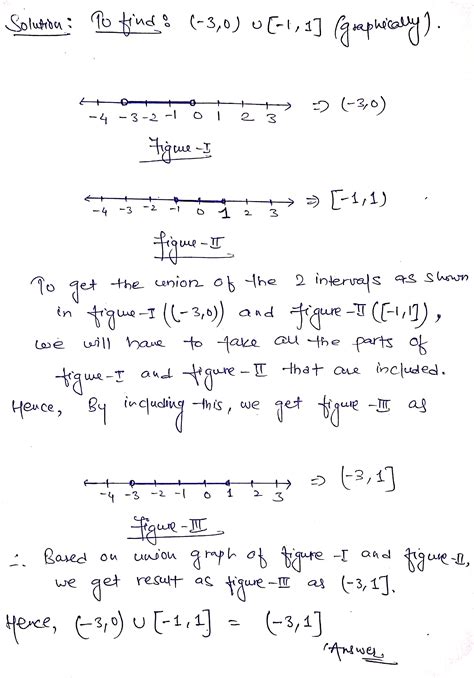 Solution: To find: (-3,0) ∪ [-1,1] (graphically).
-4 -3 -2 -1 0 1 2 3 ⇒ (-3,0)
Figure-I
-4 -3 -2 -1 0 1 2 3 ⇒ [-1,1)
Figure-II
To get the union of the 2 intervals as shown
in figure-I ((-3,0)) and figure-II ([-1,1]),
we will have to take all the parts of
figure-I and figure-II that are included.
Hence, By including this, we get figure-III as
-4 -3 -2 -1 0 1 2 3 ⇒ (-3,1]
Figure-III
∴ Based on union graph of figure-I and figure-II,
we get result as figure-III as (-3,1].
Hence, (-3,0) ∪ [-1,1] = (-3,1]
Answer